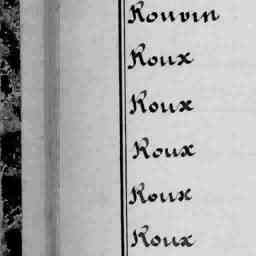 Rouvin
Roux
Roux
Roux
Roux
Roux